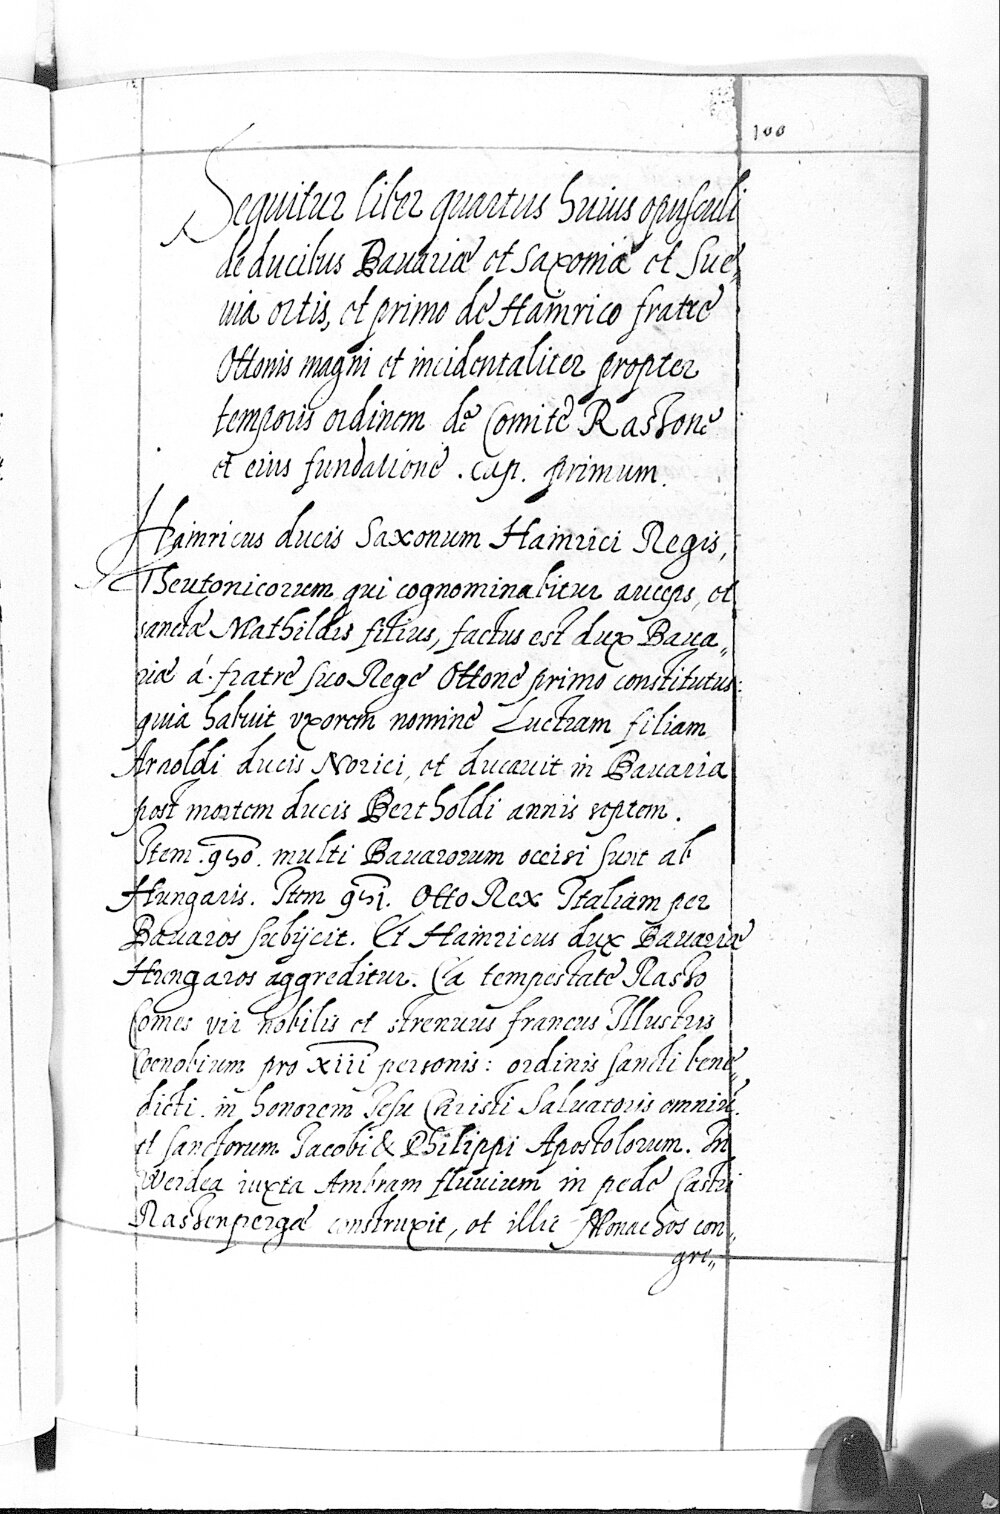 100
Sequitur liber quartus huius opusculi
de ducibus Bauariæ et Saxoniæ et Sue„
uia ortis, et primo de Hainrico fratre
Ottonis magni et incidentaliter propter
temporis ordinem de Comite Rassone
et eius fundatione. Cap. primum.
Hainricus ducis Saxonum Hainrici Regis,
Theutonicorum qui cognominabitur auceps, et
sanctæ Mathildis filius, factus est dux Baua„
riæ á fratre suo Rege Ottone primo constitutus:
quia habuit vxorem nomine Luctiam filiam
Arnoldi ducis Norici, et ducauit in Bauaria
post mortem ducis Bertholdi annis septem.
Item .950. multi Bauarorum occisi sunt ab
Hungaris. Item 951. Otto Rex Italiam per
Bauaros subijcit. Et Hainricus dux Bauariæ
Hungaros aggreditur. Ea tempestate Rasso
Comes vir nobilis et strenuus francus Illustris
Coenobium pro XIII personis: ordinis sancti bene„
dicti. in honorem Jesu Christi Saluatoris omniū
et sanctorum Jacobi & Philippi Apostolorum. In
Werdea iuxta Ambram fluuium in pede Castri
Rassenpergæ construxit, et illic Monachos con„
gre„